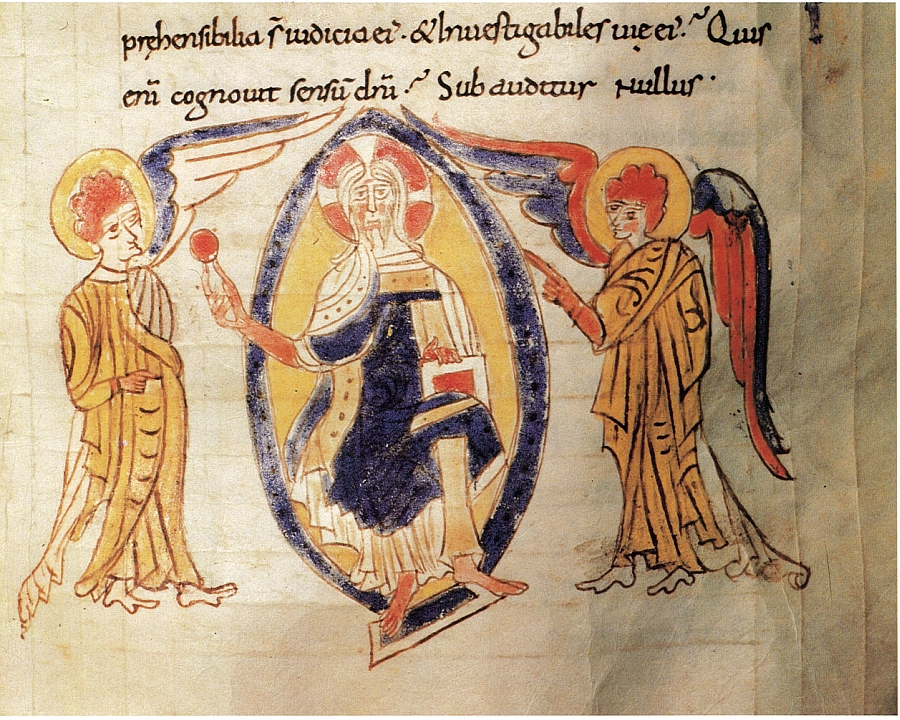 pręhensibilia s̄ iudicia ei᛫ & Inuestigabiles uię ei᛫ Quis
eni̅ cognouit sensū dn̄i᛫ Sub auditur Nullus᛫